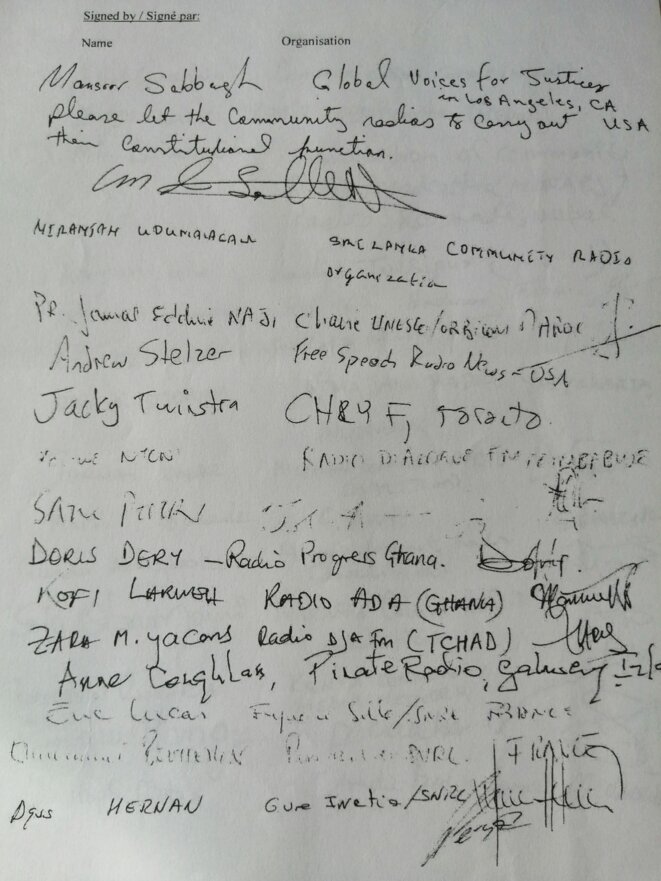 Signed by / Signé par:
Name Organisation
Mansoor Sabbagh Global Voices for Justice
in Los Angeles, CA
please let the Community radios to carry out USA
their Constitutional function.
NIRANJAN UDUMALAGALA SRI LANKA COMMUNITY RADIO
organization
Pr. Jamal Eddine NAJI Chaire UNESCO/ORBICOM MAROC
Andrew Stelzer Free Speech Radio News - USA
Jacky Tuinstra CHRY FM Toronto.
RADIO DIALOGUE FM ZIMBABWE
DORIS DERY - Radio Progress Ghana.
KOFI LARWEH RADIO ADA (GHANA)
ZARA M. yacoub Radio DJA Fm (TCHAD)
Anne Coughlan, Pirate Radio, Galway
Eric Lucas SNRL FRANCE
FRANCE
HERNAN Gure Irratia/SNRL